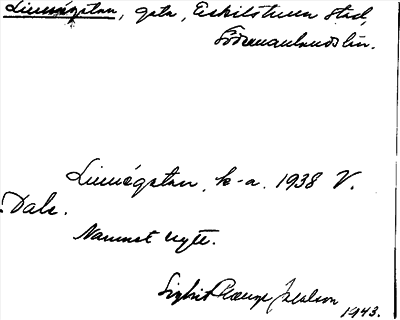 Linnégatan, gata, Eskilstuna stad,
Södermanlands län.
Linnégatan, k-a. 1938 V.
Dale.
Namnet nytt.
Sigrid Range Jacobson
1943.